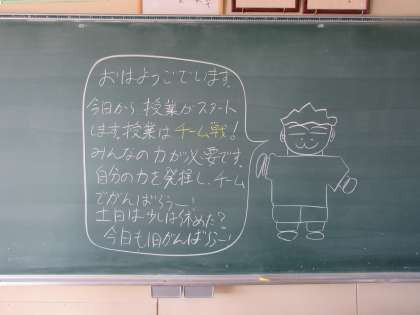 おはようございます。
今日から授業がスタート
します。授業はチーム戦!
みんなの力が必要です。
自分の力を発揮し、チーム
でがんばろうー!
土日は少しは休めた?
今日も1日がんばろー!